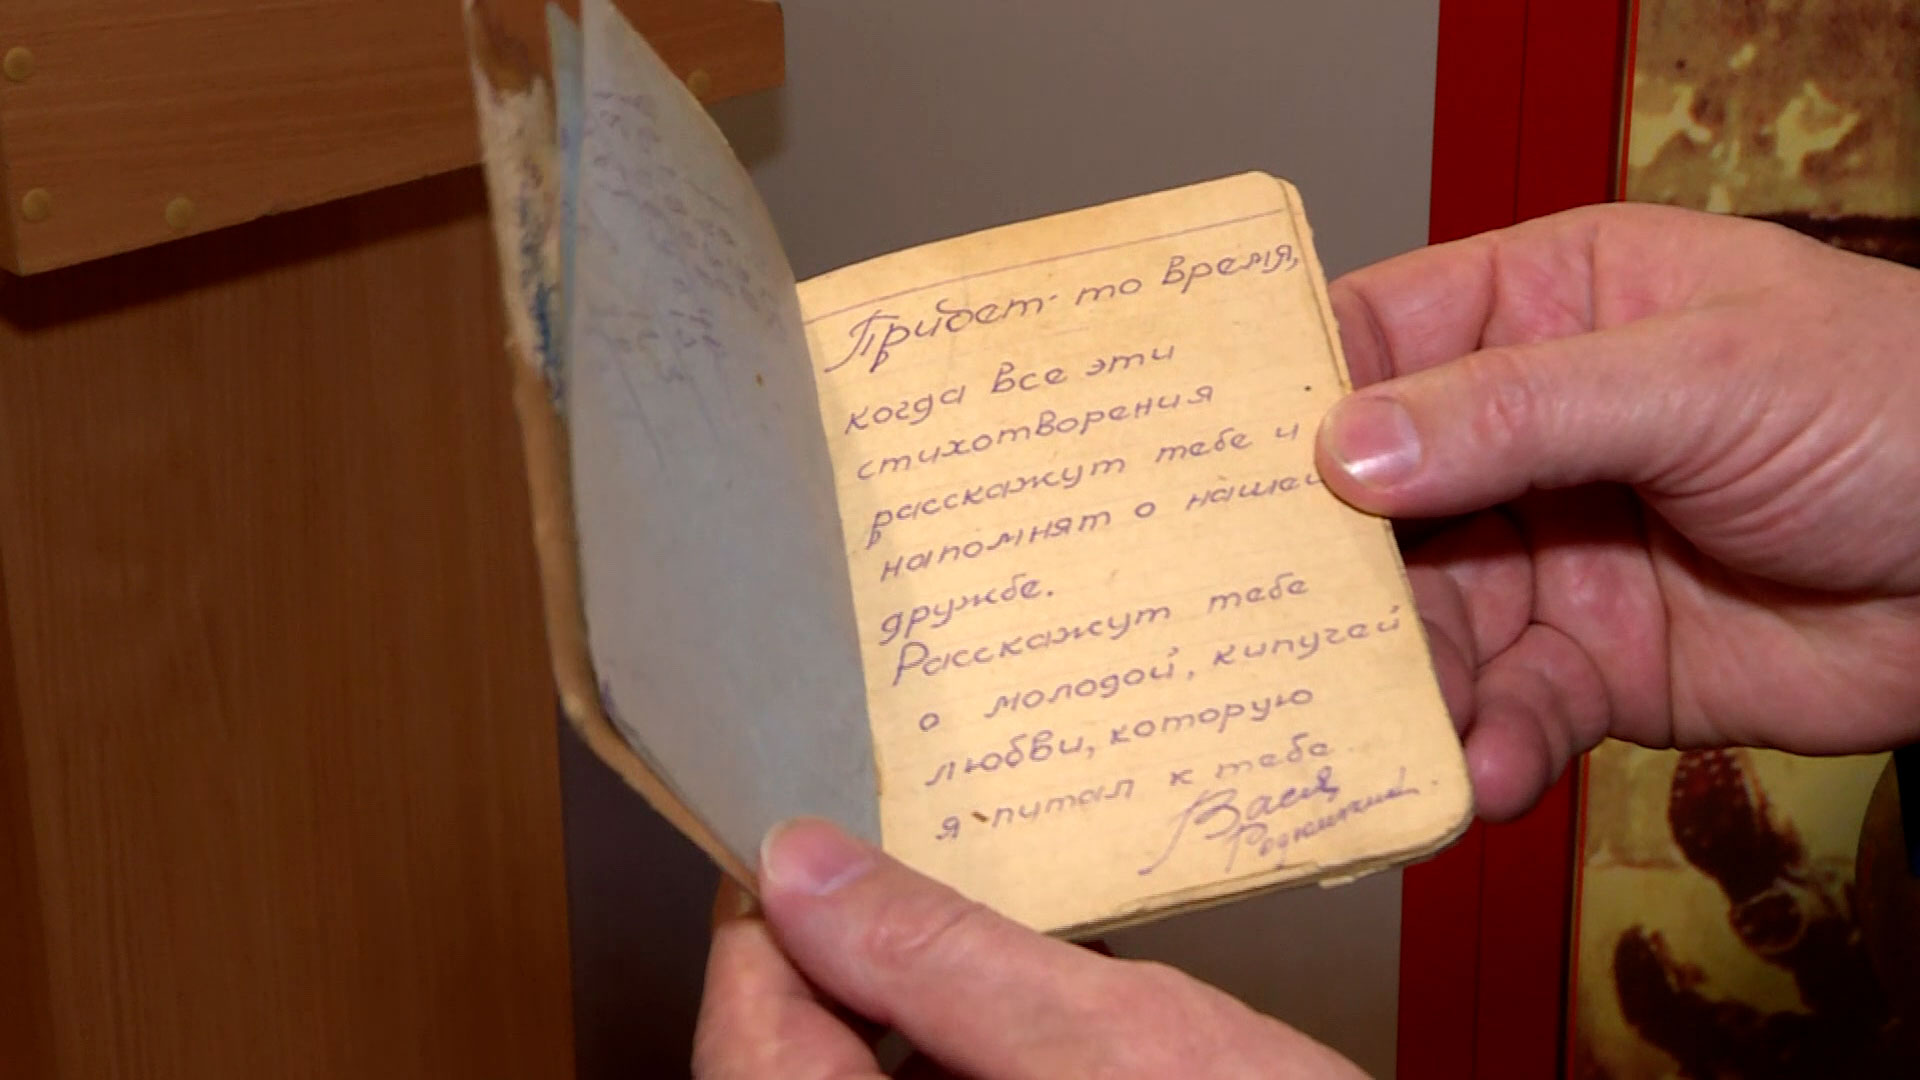 Придет-то время,
когда все эти
стихотворения
расскажут тебе и
напомнят о нашей
дружбе.
Расскажут тебе
о молодой, кипучей
любви, которую
я питал к тебе
Вася